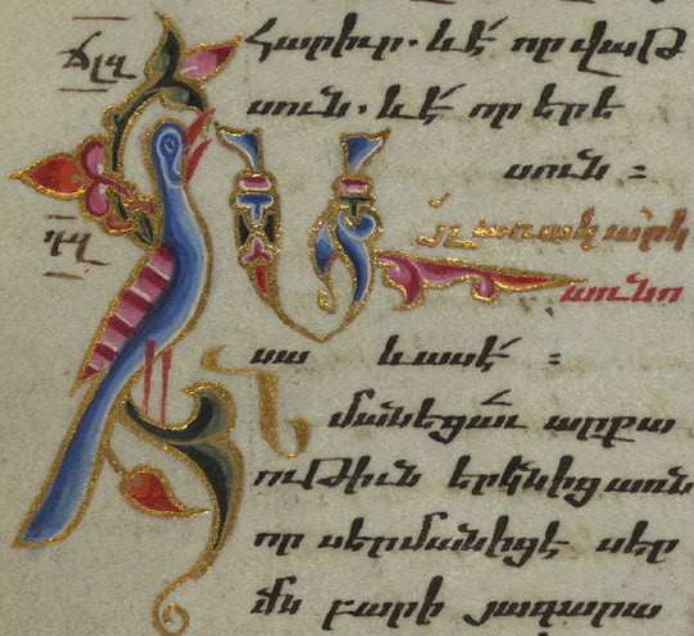 ՃԼԶ
հարիւր. և է որ վաթ
սուն. և է որ երե
սուն ։
Այլ առակ արկ
առ նո
սա և ասէ ։
Նմանեցաւ արքա
ութիւն երկնից առն
որ սերմանիցէ սեր
մն բարի յագարա